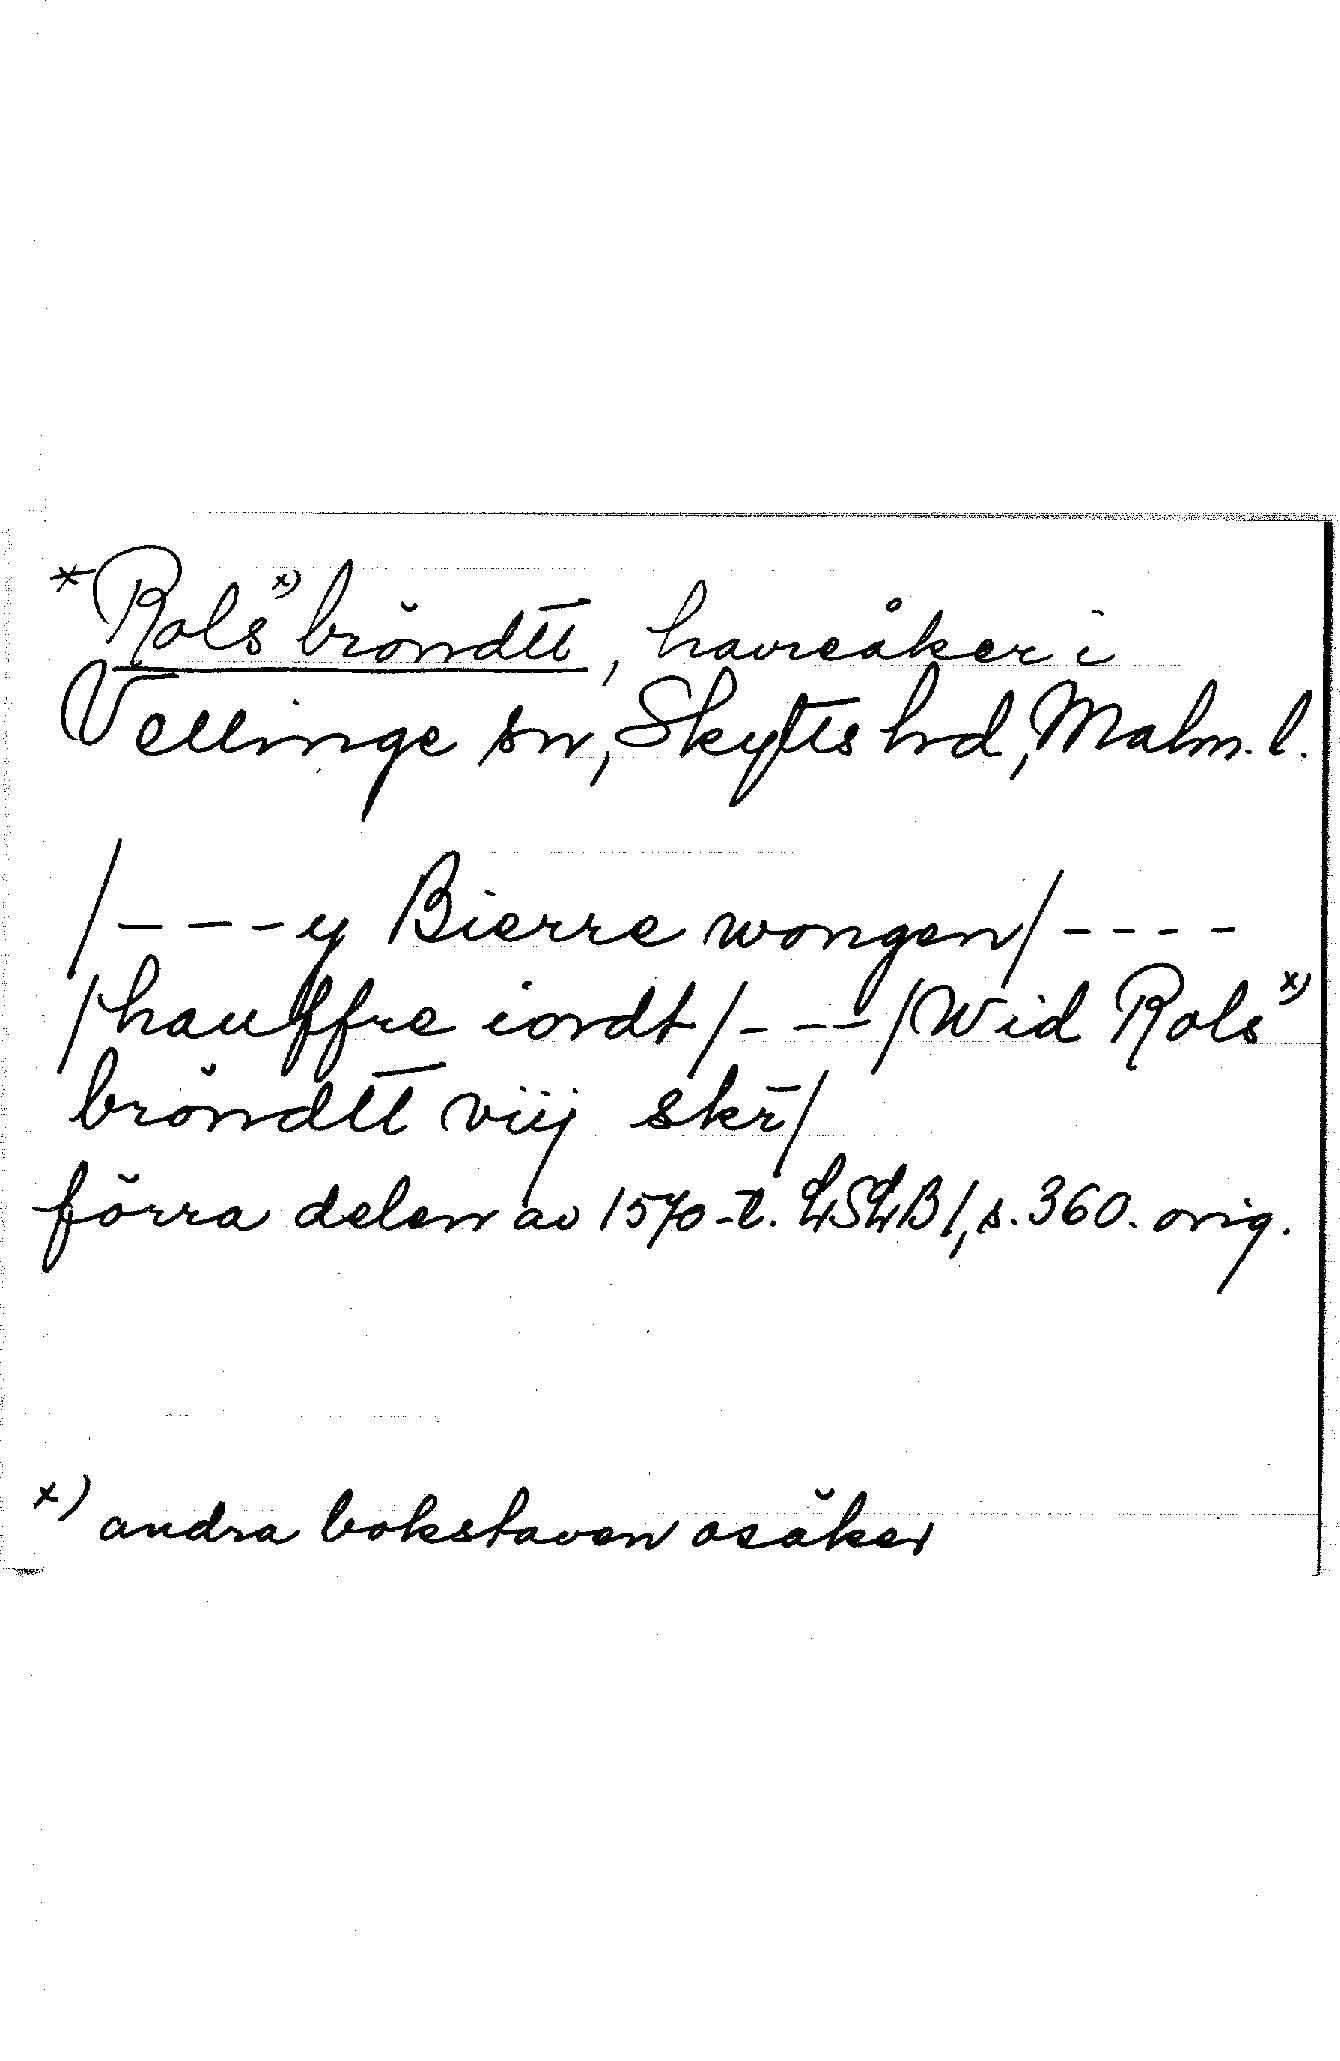 *Rols x) bröndtt, havreåker i
Vellinge sn, Skytts hd, Malm. l.
/- - - y Bierre wongen/ - - - -
/hauffre iordt/ - - - /Wid Rols x)
bröndtt viij skr̄/
förra delen av 1570-t. LSLB 1, s. 360. orig.
x) andra bokstaven osäker